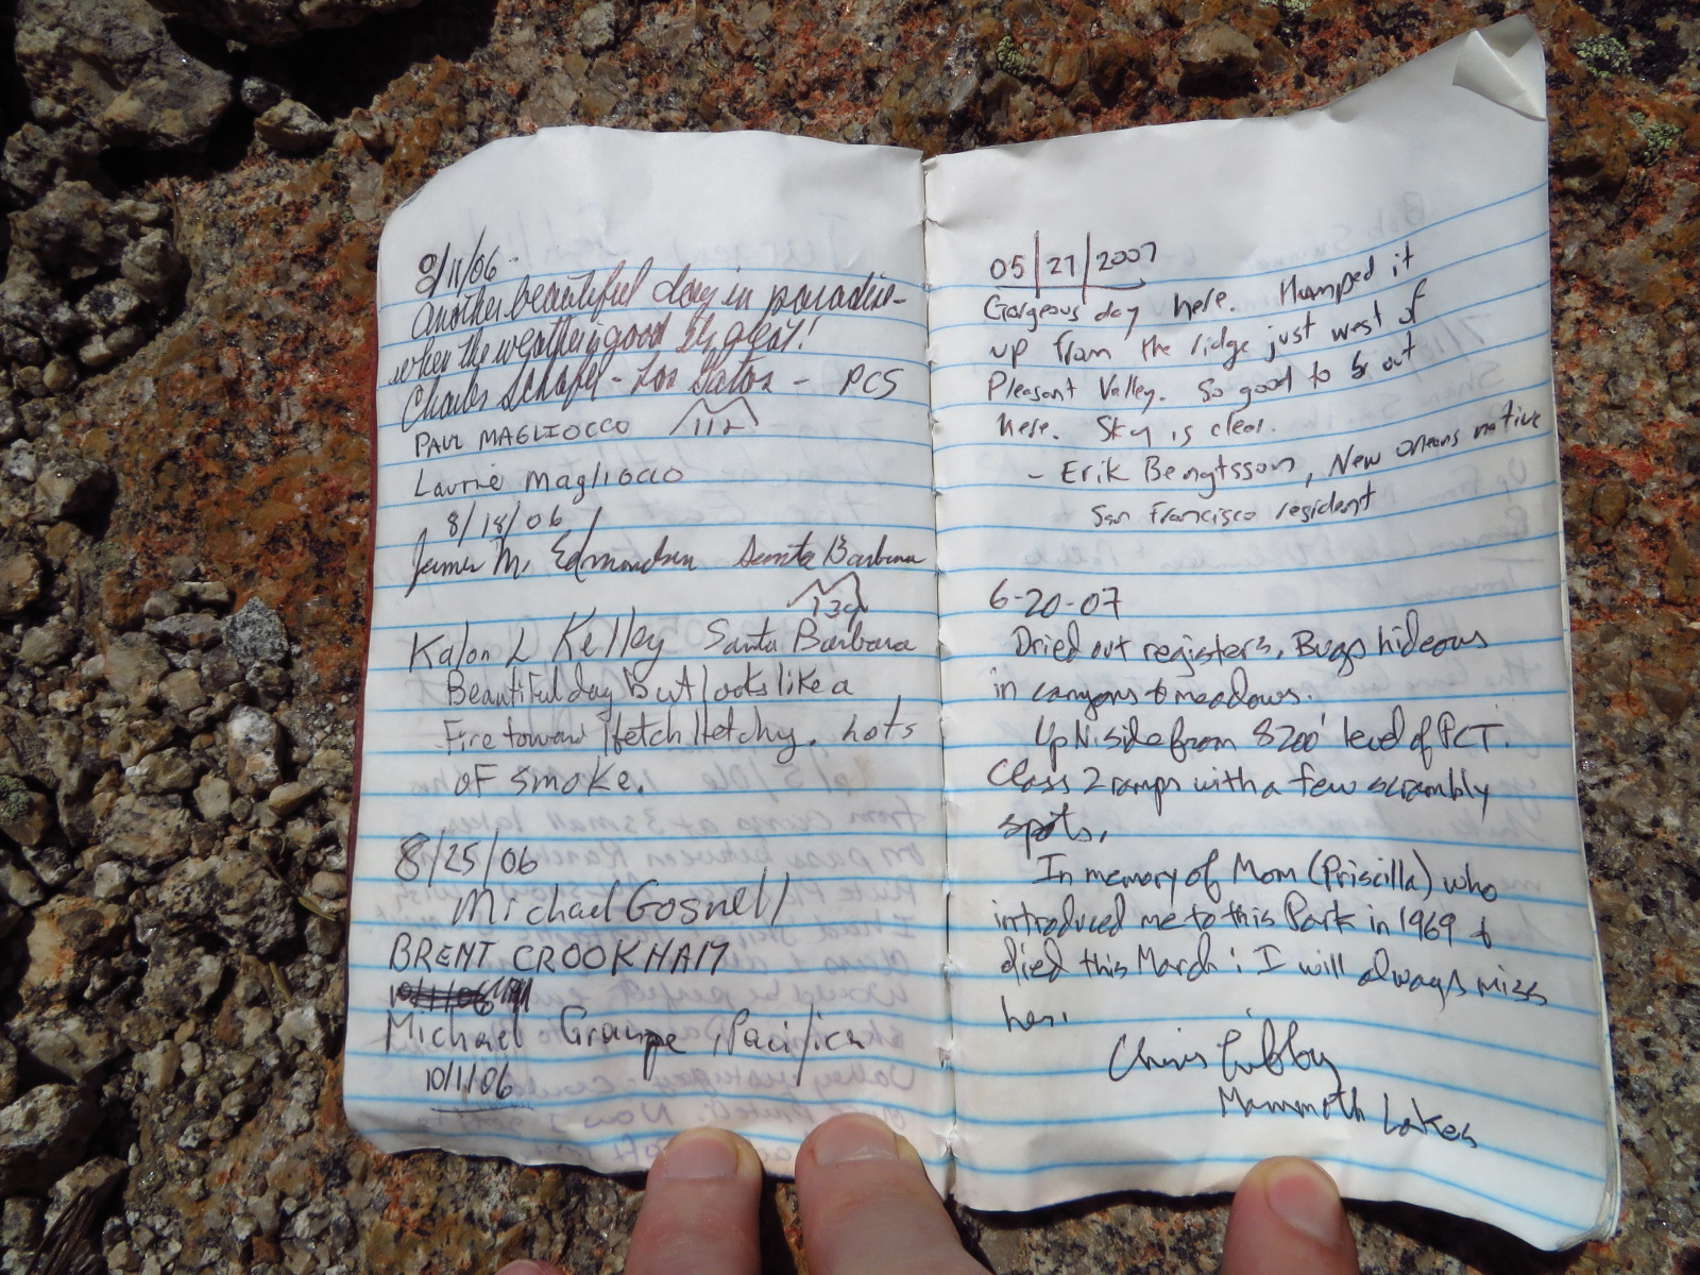 8/11/06
Another beautiful day in paradise -
when the weather is good it's great!
Charles Schafer - Los Gatos - PCS
PAUL MAGLIOCCO 112
Laurie Magliocco
8/18/06
James M. Edmondson Santa Barbara
139
Kalon L Kelley Santa Barbara
Beautiful day But looks like a
Fire toward Hetch Hetchy. Lots
of smoke.
8/25/06
Michael Gosnell
BRENT CROOKHAM
Michael Graupe, Pacifica
10/1/06
05/27/2007
Gorgeous day here. Humped it
up from the ridge just west of
Pleasant Valley. So good to be out
here. Sky is clear.
- Erik Bengtsson, New Orleans native
San Francisco resident
6-20-07
Dried out registers. Bugs hideous
in canyons & meadows.
Up N. side from 8200' level of PCT.
Class 2 ramps with a few scrambly
spots.
In memory of Mom (Priscilla) who
introduced me to this Park in 1969 &
died this March: I will always miss
her.
Chris Libby
Mammoth Lakes